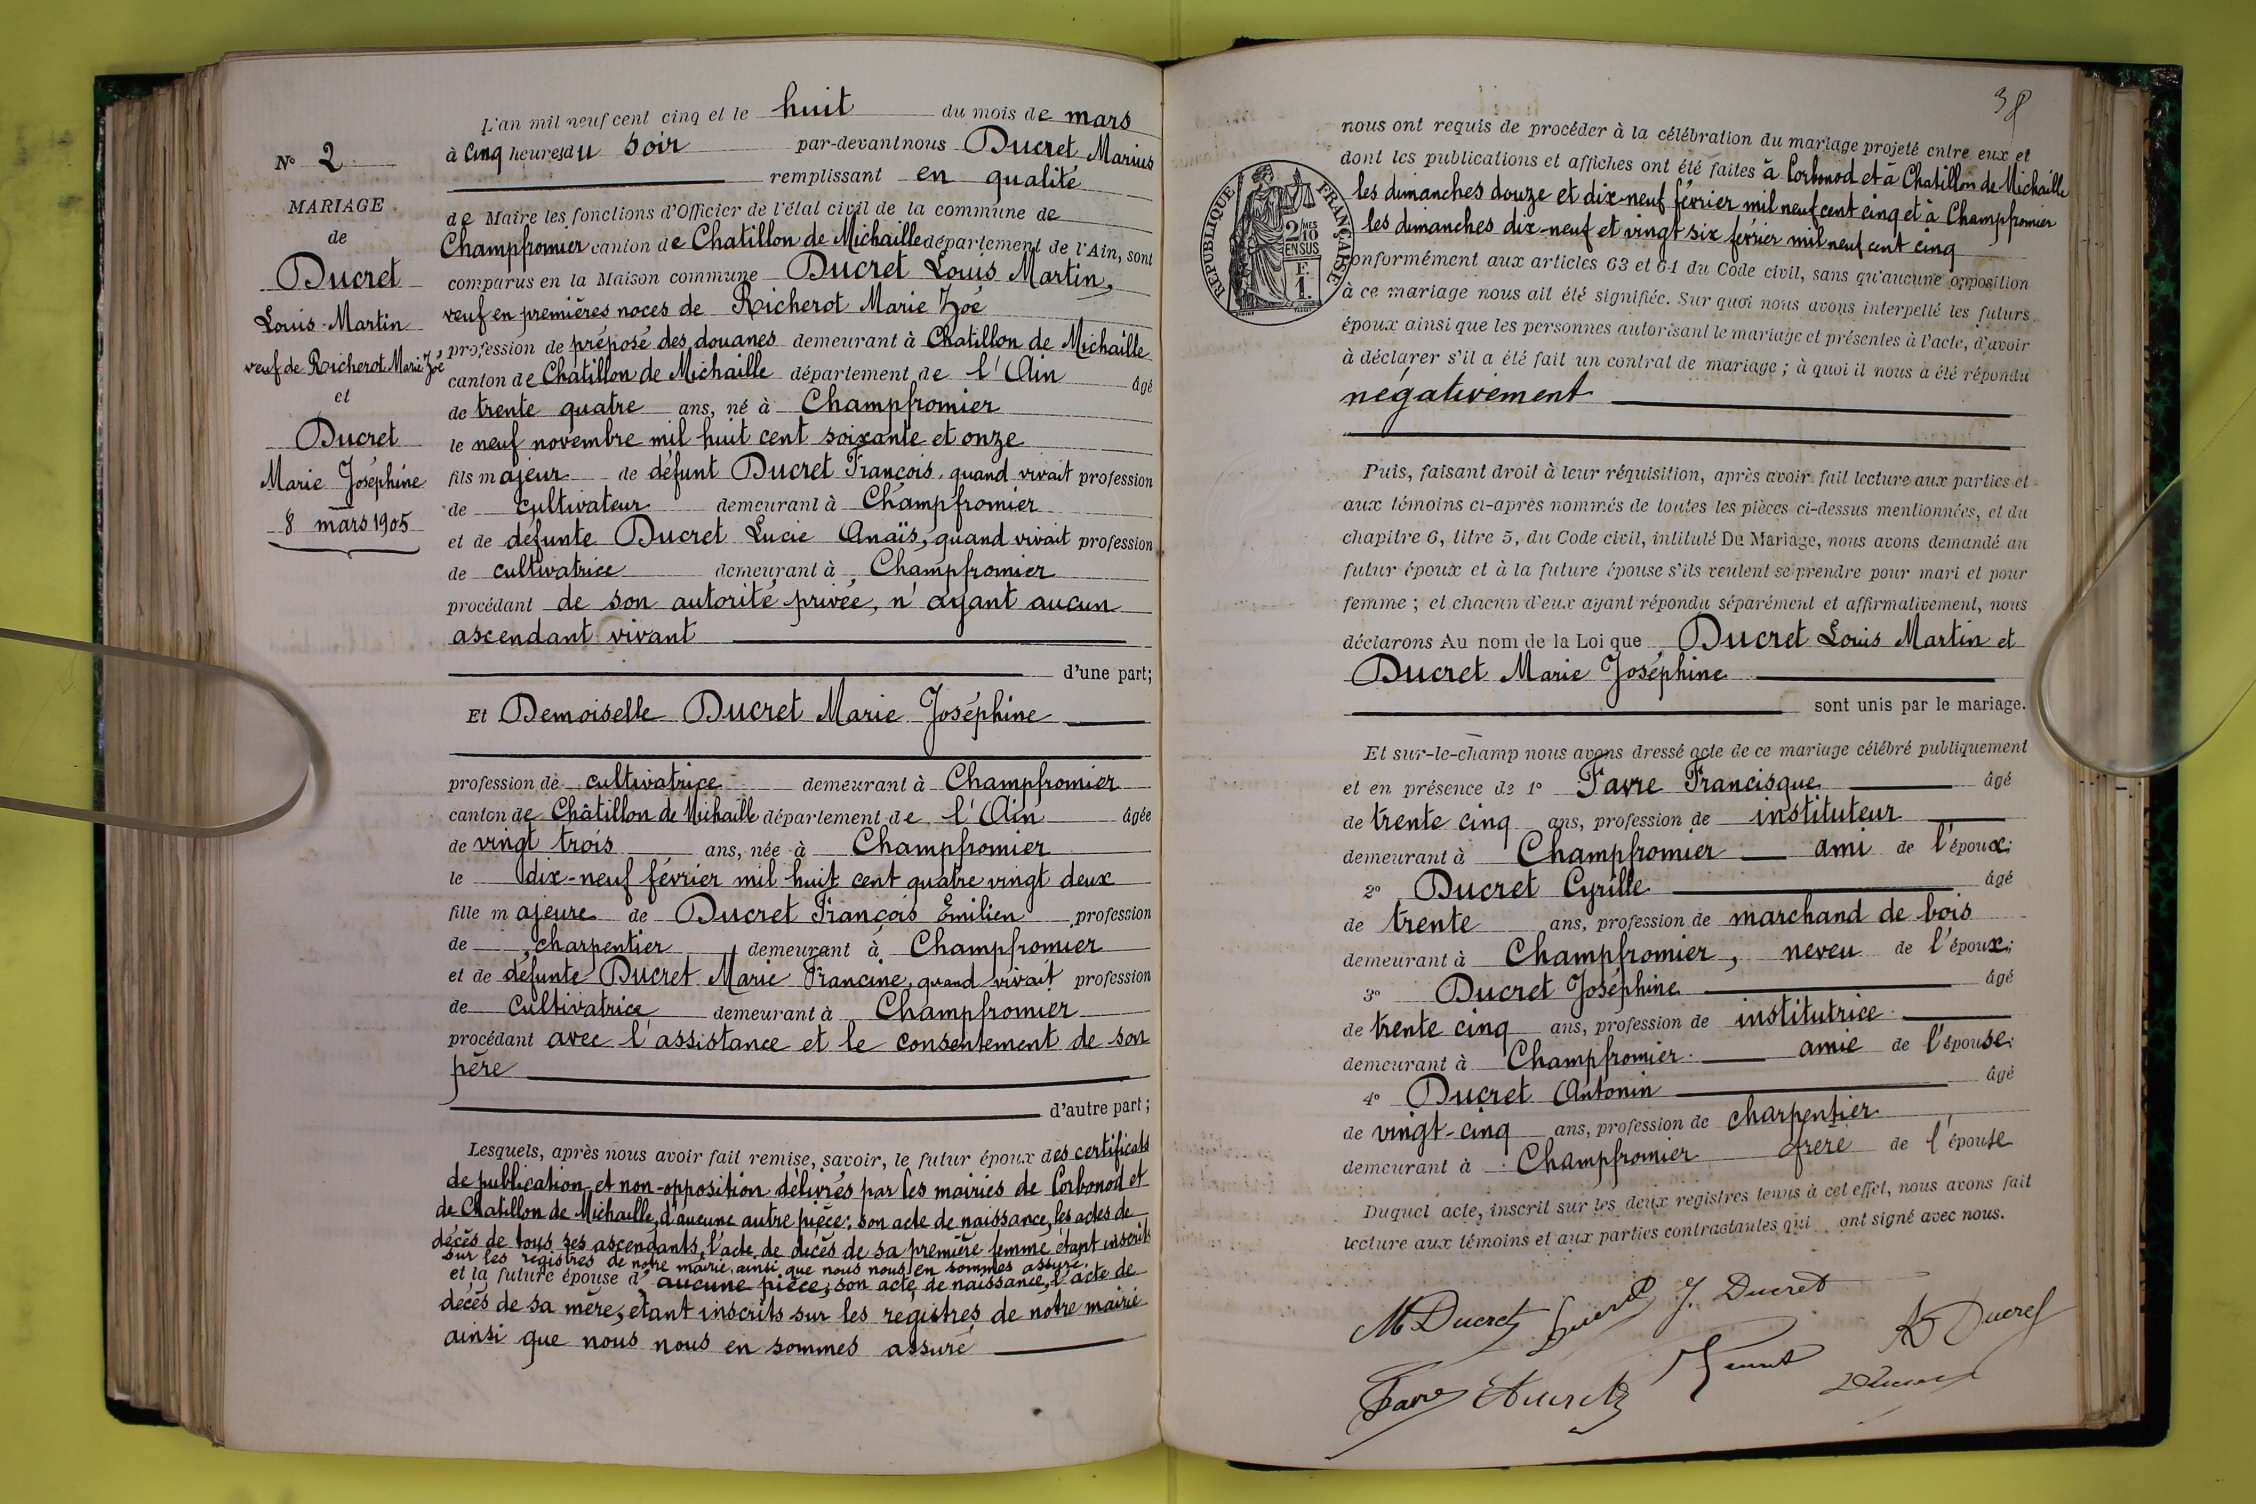 N° 2
MARIAGE
de
Ducret
Louis Martin
veuf de Richerot Marie Zoé
et
Ducret
Marie Joséphine
8 mars 1905
L'an mil neuf cent cinq et le huit du mois de mars
à cinq heures du soir par-devant nous Ducret Marius
remplissant en qualité
de Maire les fonctions d'Officier de l'état civil de la commune de
Champfromier canton de Chatillon de Michaille département de l'Ain, sont
comparus en la Maison commune Ducret Louis Martin,
veuf en premières noces de Richerot Marie Zoé
profession de préposé des douanes demeurant à Chatillon de Michaille
canton de Châtillon de Michaille département de l'Ain âgé
de trente quatre ans, né à Champfromier
le neuf novembre mil huit cent soixante et onze
fils majeur de défunt Ducret François, quand vivait profession
de cultivateur demeurant à Champfromier
et de défunte Ducret Lucie Anaïs, quand vivait profession
de cultivatrice demeurant à Champfromier
procédant de son autorité privée, n'ayant aucun
ascendant vivant
d'une part;
Et Demoiselle Ducret Marie Joséphine
profession de cultivatrice demeurant à Champfromier
canton de Châtillon de Michaille département de l'Ain âgée
de vingt trois ans, née à Champfromier
le dix-neuf février mil huit cent quatre vingt deux
fille majeure de Ducret François Emilien profession
de charpentier demeurant à Champfromier
et de défunte Ducret Marie Francine, quand vivait profession
de cultivatrice demeurant à Champfromier
procédant avec l'assistance et le consentement de son
père
d'autre part;
Lesquels, après nous avoir fait remise, savoir, le futur époux des certificats
de publication et non-opposition délivrés par les mairies de Corbonod et
de Chatillon de Michaille, d'aucune autre pièce; son acte de naissance, les actes de
décès de tous ses ascendants, l'acte de décès de sa première femme étant inscrits
sur les registres de notre mairie, ainsi que nous nous en sommes assuré.
et la future épouse d'aucune pièce; son acte de naissance, l'acte de
décès de sa mère, étant inscrits sur les registres de notre mairie
ainsi que nous nous en sommes assuré
38
RÉPUBLIQUE FRANÇAISE
2/10MES
EN SUS
F.
1.
nous ont requis de procéder à la célébration du mariage projeté entre eux et
dont les publications et affiches ont été faites à Corbonod et à Chatillon de Michaille
les dimanches douze et dix-neuf février mil neuf cent cinq et à Champfromier
les dimanches dix-neuf et vingt six février mil neuf cent cinq
conformément aux articles 63 et 64 du Code civil, sans qu'aucune opposition
à ce mariage nous ait été signifiée. Sur quoi nous avons interpellé les futurs
époux ainsi que les personnes autorisant le mariage et présentes à l'acte, d'avoir
à déclarer s'il a été fait un contrat de mariage; à quoi il nous a été répondu
négativement
Puis, faisant droit à leur réquisition, après avoir fait lecture aux parties et
aux témoins ci-après nommés de toutes les pièces ci-dessus mentionnées, et du
chapitre 6, titre 5, du Code civil, intitulé Du Mariage, nous avons demandé au
futur époux et à la future épouse s'ils veulent se prendre pour mari et pour
femme; et chacun d'eux ayant répondu séparément et affirmativement, nous
déclarons Au nom de la Loi que Ducret Louis Martin et
Ducret Marie Joséphine
sont unis par le mariage.
Et sur-le-champ nous avons dressé acte de ce mariage célébré publiquement
et en présence de 1° Favre Francisque âgé
de trente cinq ans, profession de instituteur
demeurant à Champfromier ami de l'époux;
2° Ducret Cyrille âgé
de trente ans, profession de marchand de bois
demeurant à Champfromier, neveu de l'époux;
3° Ducret Joséphine âgé
de trente cinq ans, profession de institutrice
demeurant à Champfromier amie de l'épouse;
4° Ducret Antonin âgé
de vingt-cinq ans, profession de charpentier
demeurant à Champfromier frère de l'épouse
Duquel acte, inscrit sur les deux registres tenus à cet effet, nous avons fait
lecture aux témoins et aux parties contractantes qui ont signé avec nous.
M Ducret Ducret J. Ducret
A Ducret
Favre Ducret